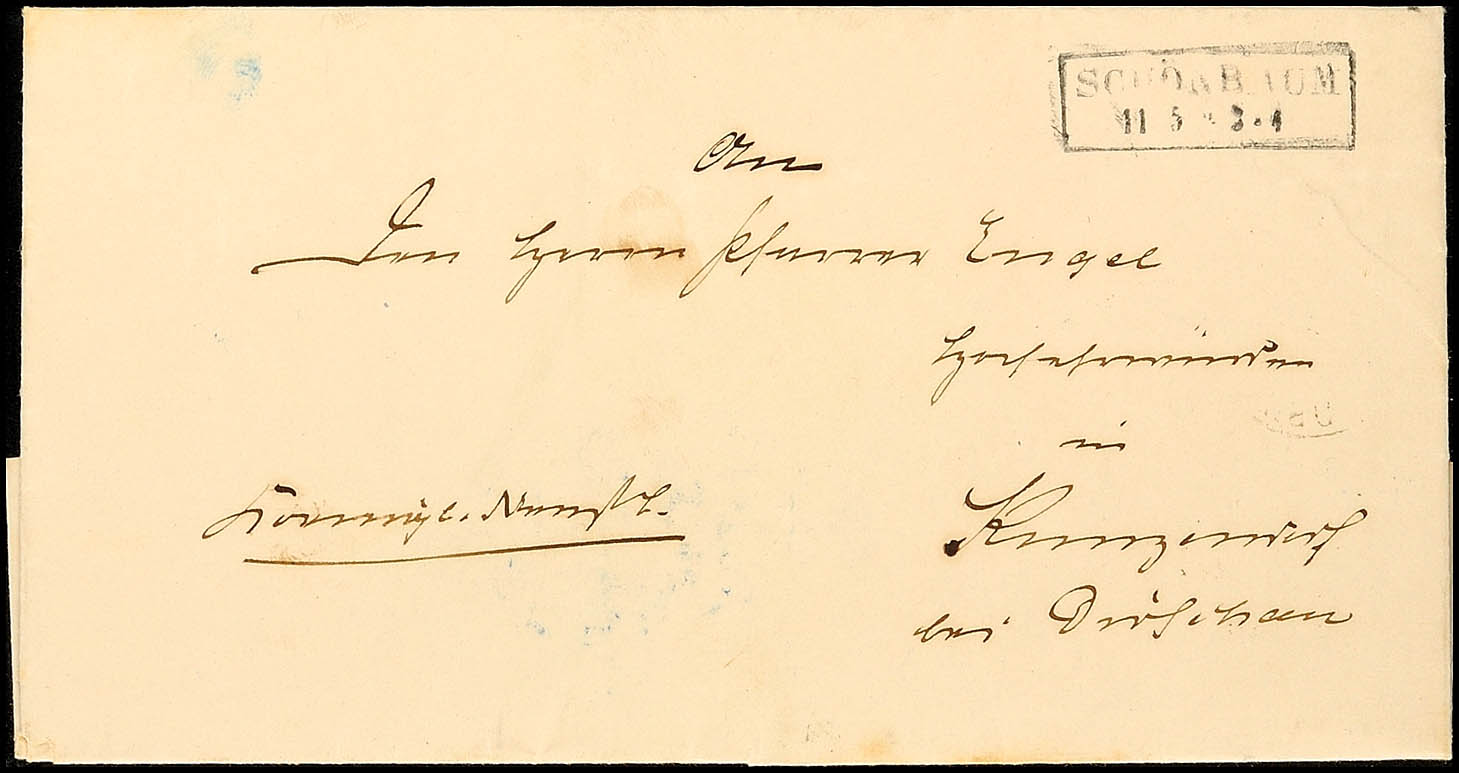 SCHÖNBAUM
11 5 * 3-4
An
Den Herrn Pfarrer Engel
Hochehrwürden
in
Kunzendorf
bei Dirschau